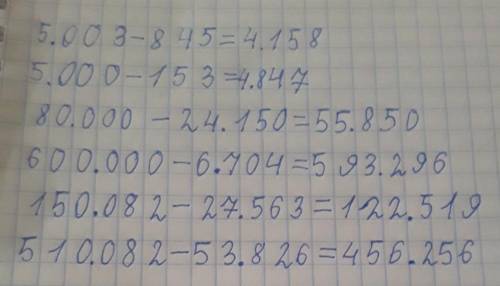 5.003-845=4.158
5.000-153=4.847
80.000-24.150=55.850
600.000-6.704=593.296
150.082-27.563=122.519
510.082-53.826=456.256